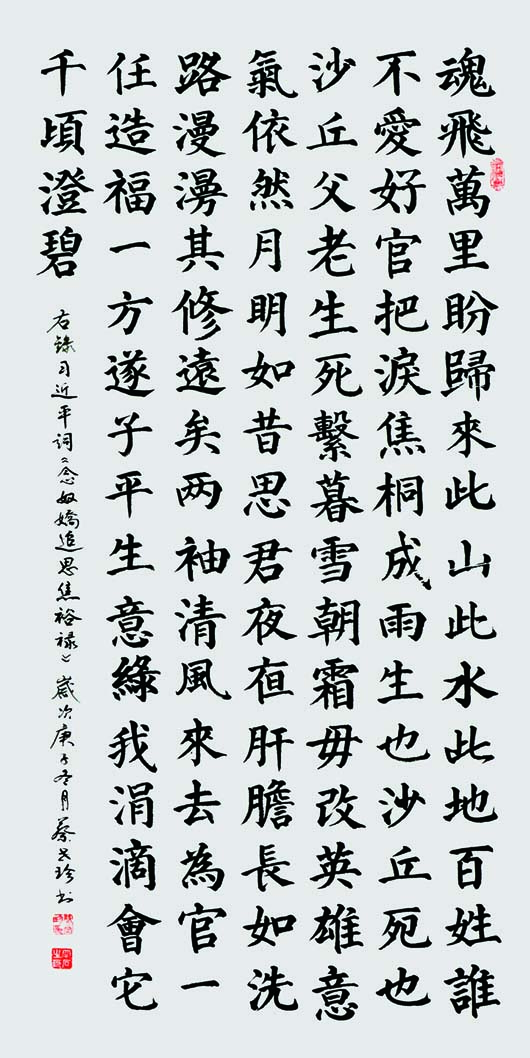 魂飛萬里盼歸來此山此水此地百姓誰
不愛好官把淚焦桐成雨生也沙丘死也
沙丘父老生死繫暮雪朝霜毋改英雄意
氣依然月明如昔思君夜亱肝膽長如洗
路漫漫其修遠矣两袖清風來去為官一
任造福一方遂子平生意綠我涓滴會它
千頃澄碧
右錄习近平词《念奴嬌追思焦裕禄》歲次庚子冬月蔡珍书